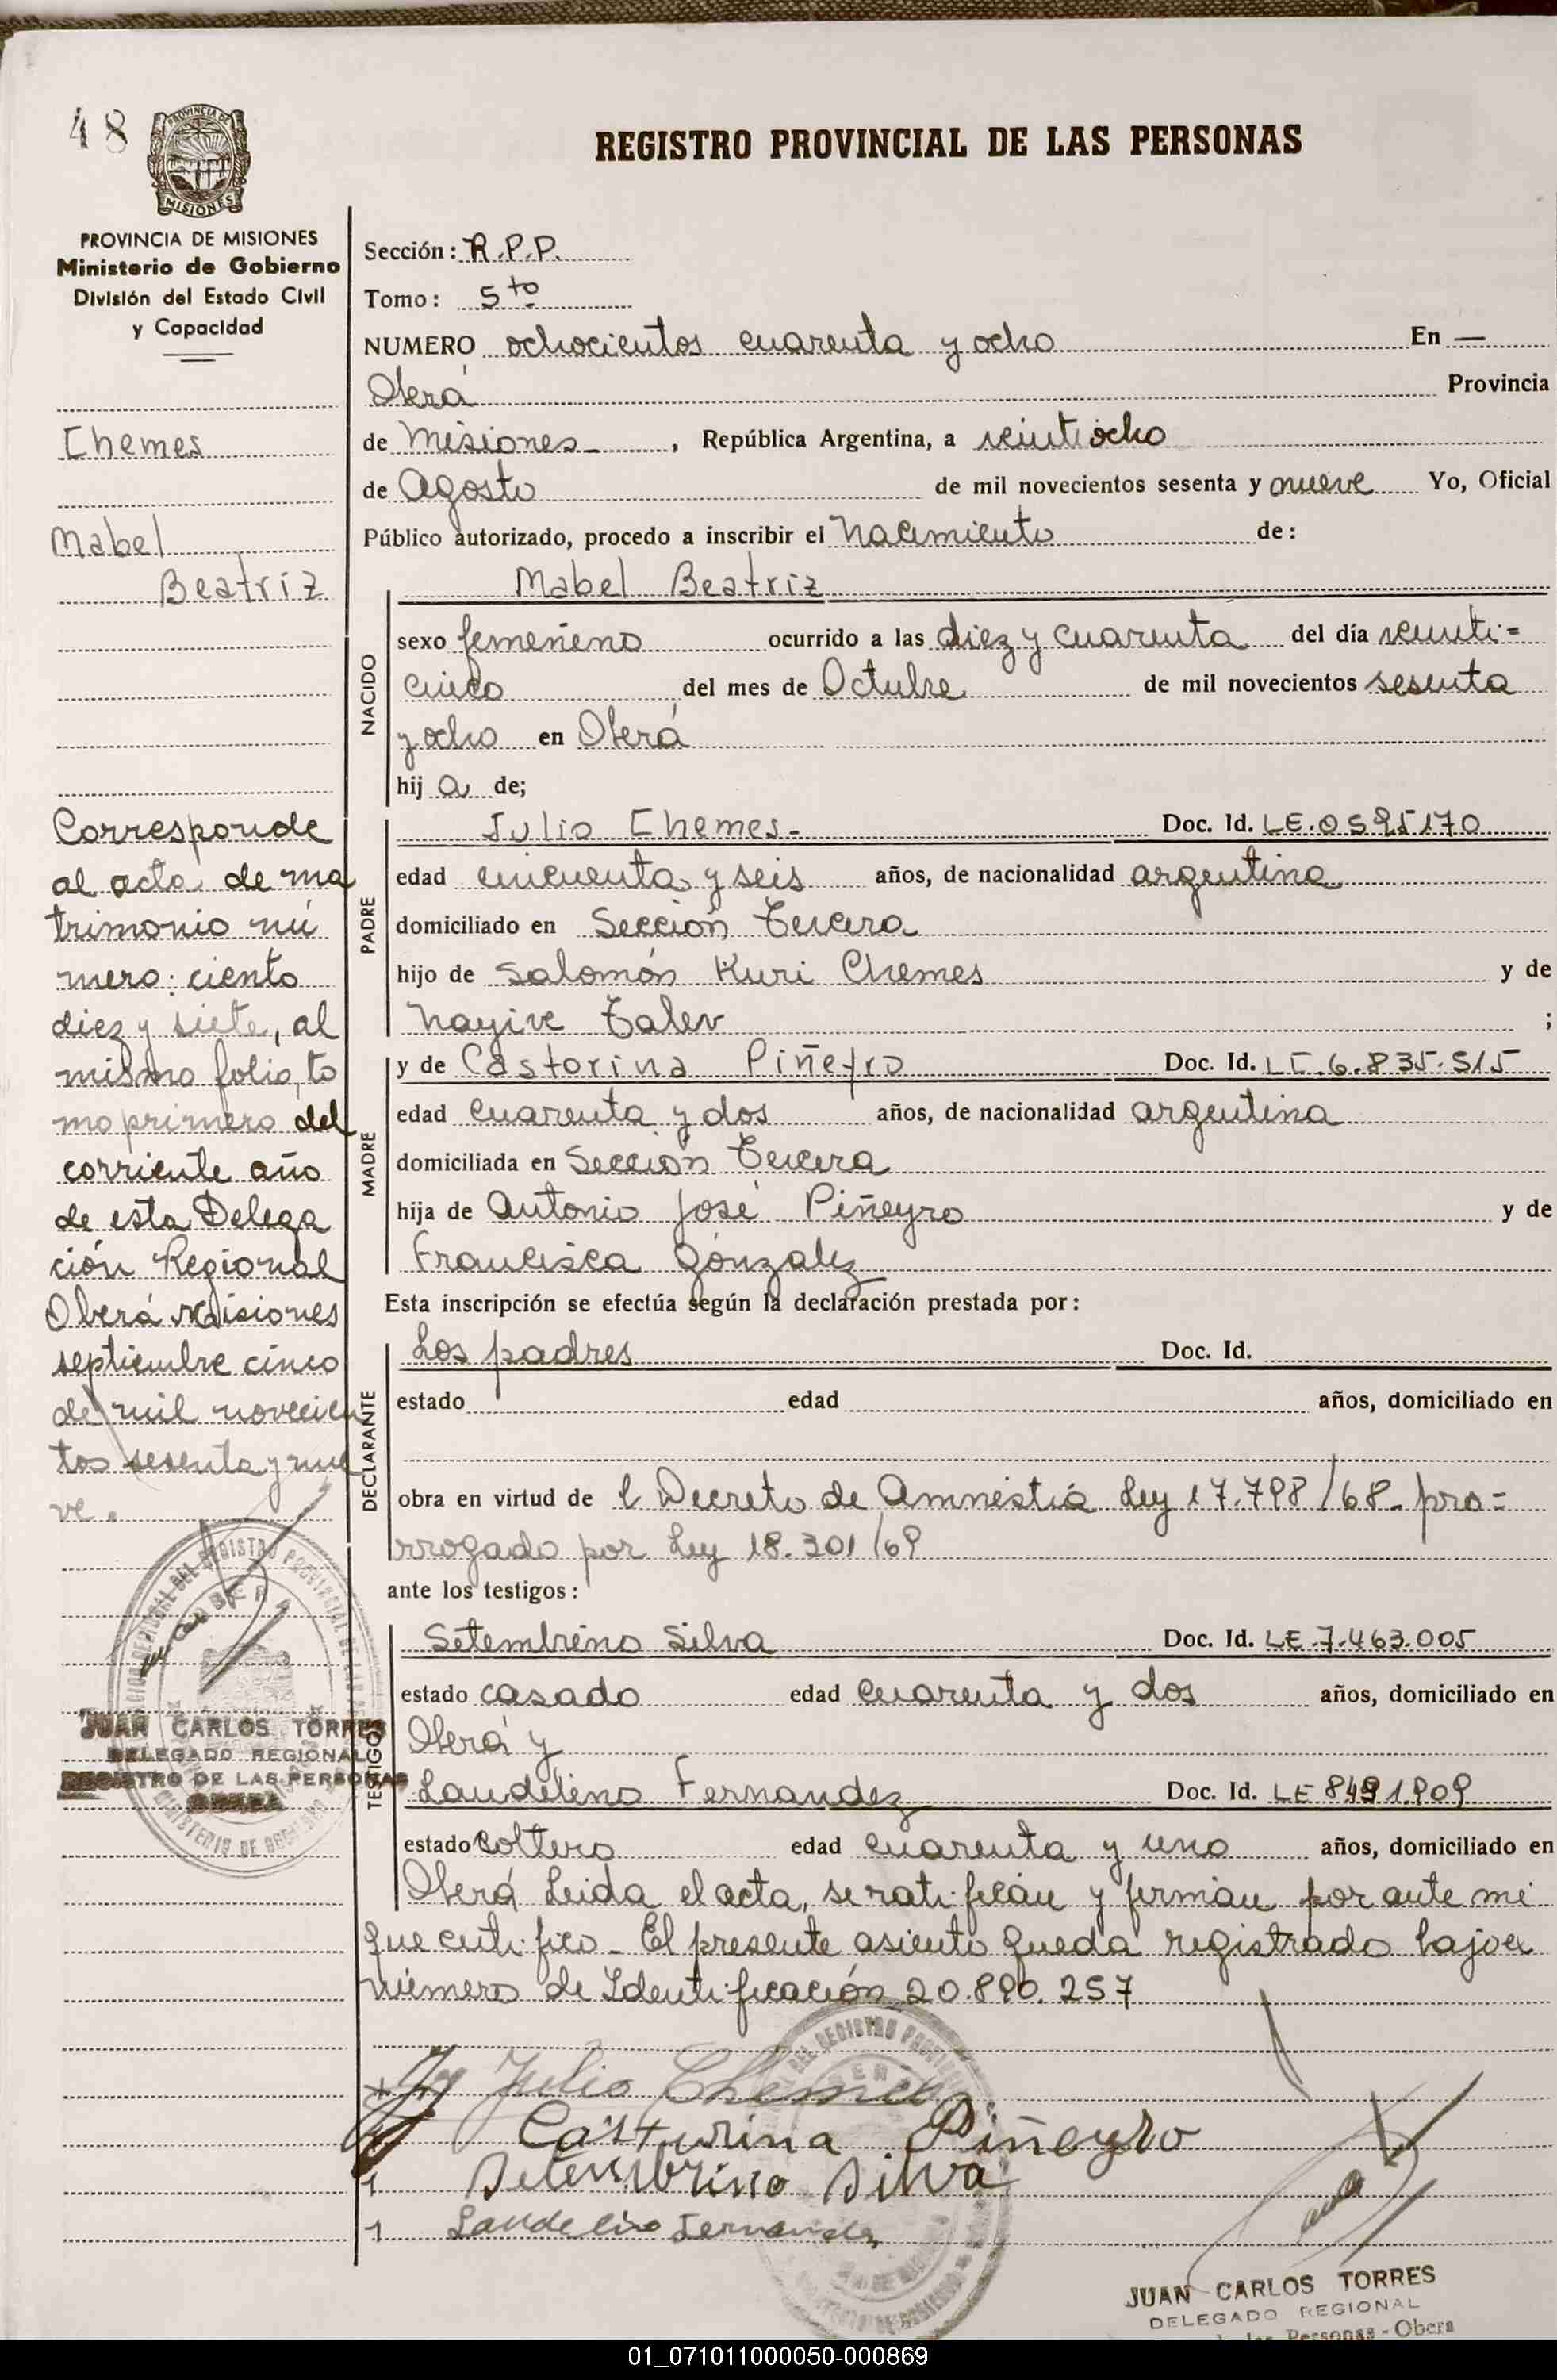 48
PROVINCIA DE
MISIONES
REGISTRO PROVINCIAL DE LAS PERSONAS
PROVINCIA DE MISIONES
Ministerio de Gobierno
División del Estado Civil
y Capacidad
Chemes
Mabel
Beatriz
Corresponde
al acta de ma
trimonio nú
mero: ciento
diez y siete, al
mismo folio, to
mo primero del
corriente año
de esta Delega
ción Regional
Oberá Misiones
septiembre cinco
de mil novecien
tos sesenta y nue
ve.
JUAN CARLOS TORRES
DELEGADO REGIONAL
REGISTRO DE LAS PERSONAS
OBERA
Sección: R.P.P.
Tomo: 5to
NUMERO ochocientos cuarenta y ocho En —
Oberá Provincia
de Misiones_, República Argentina, a veintiocho
de Agosto de mil novecientos sesenta y nueve Yo, Oficial
Público autorizado, procedo a inscribir el Nacimiento de:
NACIDO
Mabel Beatriz
sexo femenino ocurrido a las diez y cuarenta del día veinti=
cinco del mes de Octubre de mil novecientos sesenta
y ocho en Oberá
hij a de;
PADRE
Julio Chemes- Doc. Id. LE.0595170
edad cincuenta y seis años, de nacionalidad argentina
domiciliado en Sección Tercera
hijo de Salomón Kuri Chemes y de
Nayive Talev ;
MADRE
y de Castorina Piñeyro Doc. Id. LC.6.835.515
edad cuarenta y dos años, de nacionalidad argentina
domiciliada en Sección Tercera
hija de Antonio José Piñeyro y de
Francisca Gónzalez
Esta inscripción se efectúa según la declaración prestada por:
DECLARANTE
Los padres Doc. Id.
estado edad años, domiciliado en
obra en virtud de l Decreto de Amnistía Ley 17.798/68- pro=
rrogado por Ley 18.301/69
ante los testigos:
TESTIGOS
Setembrino Silva Doc. Id. LE.7.463.005
estado casado edad cuarenta y dos años, domiciliado en
Oberá y
Laudelino Fernandez Doc. Id. LE 8491.909
estado soltero edad cuarenta y uno años, domiciliado en
Oberá Leida el acta, se ratifican y firman por ante mi
que certifico_ El presente asiento queda registrado bajo el
número de Identificación 20.890.257
Julio Chemes
Casturina Piñeyro
Setembrino Silva
Laudelino Fernandez
JUAN CARLOS TORRES
DELEGADO REGIONAL
las Personas - Obera
01_071011000050-000869